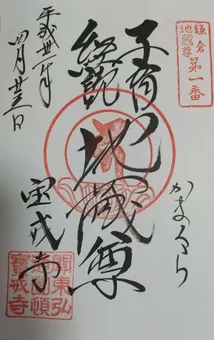 鎌倉
地蔵尊
第一番
かまくら
子育
経読
地蔵尊
宝戒寺
平成卅一年
四月廿三日
關東弘
寶戒寺